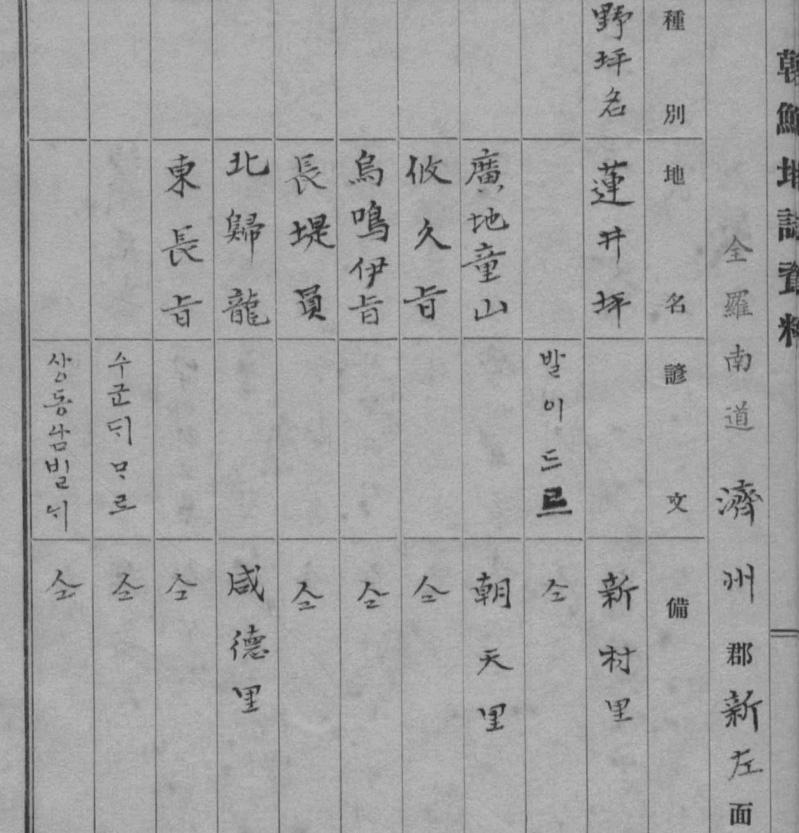 朝鮮地誌資料
全羅南道 濟州郡 新左面
種別 地名 諺文 備
野坪名 蓮井坪 新村里
발이드르 仝
廣地童山 朝天里
攸久旨 仝
烏鳴伊旨 仝
長堤員 仝
北歸龍 咸德里
東長旨 仝
수군듸므르 仝
상동남빌듸 仝